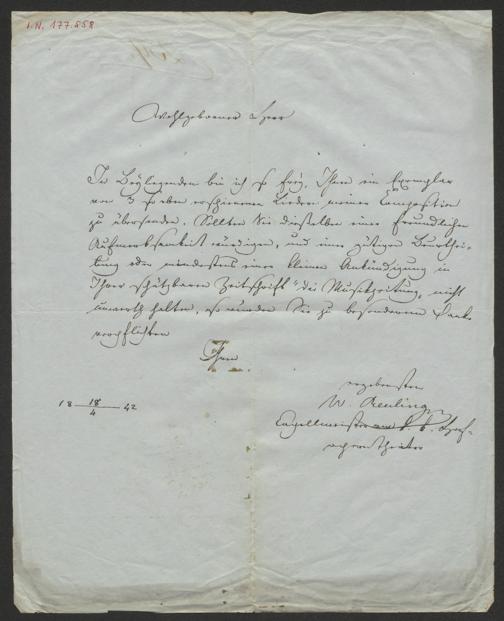 I.N. 177.858
Wohlgeborner Herr
In Beylegenden bin ich so frey, Ihnen ein Exemplar
von 3 so eben erschienenen Liedern meiner Composition
zu übersenden. Sollten Sie dieselben einer freundlichen
Aufmerksamkeit würdigen, und einer gütigen Beurthei-
lung oder mindestens einer kleinen Ankündigung in
Ihrer schätzbaren Zeitschrift "die Musikzeitung, nicht
unwerth halten, so würden Sie zu besonderem Danke
verpflichten
Ihren
ergebensten
W. Reuling
Capellmeister am k. k. Hof-
operntheater
18 18/4 42